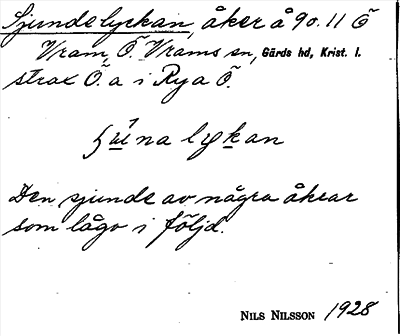 Sjundelyckan, åker å 90. 11 Ö
Vram, Ö. Vrams sn, Gärds hd, Krist. l.
strax Ö. a i Rya Ö.
na lykan
Den sjunde av några åkrar
som lågo i följd.
NILS NILSSON 1928